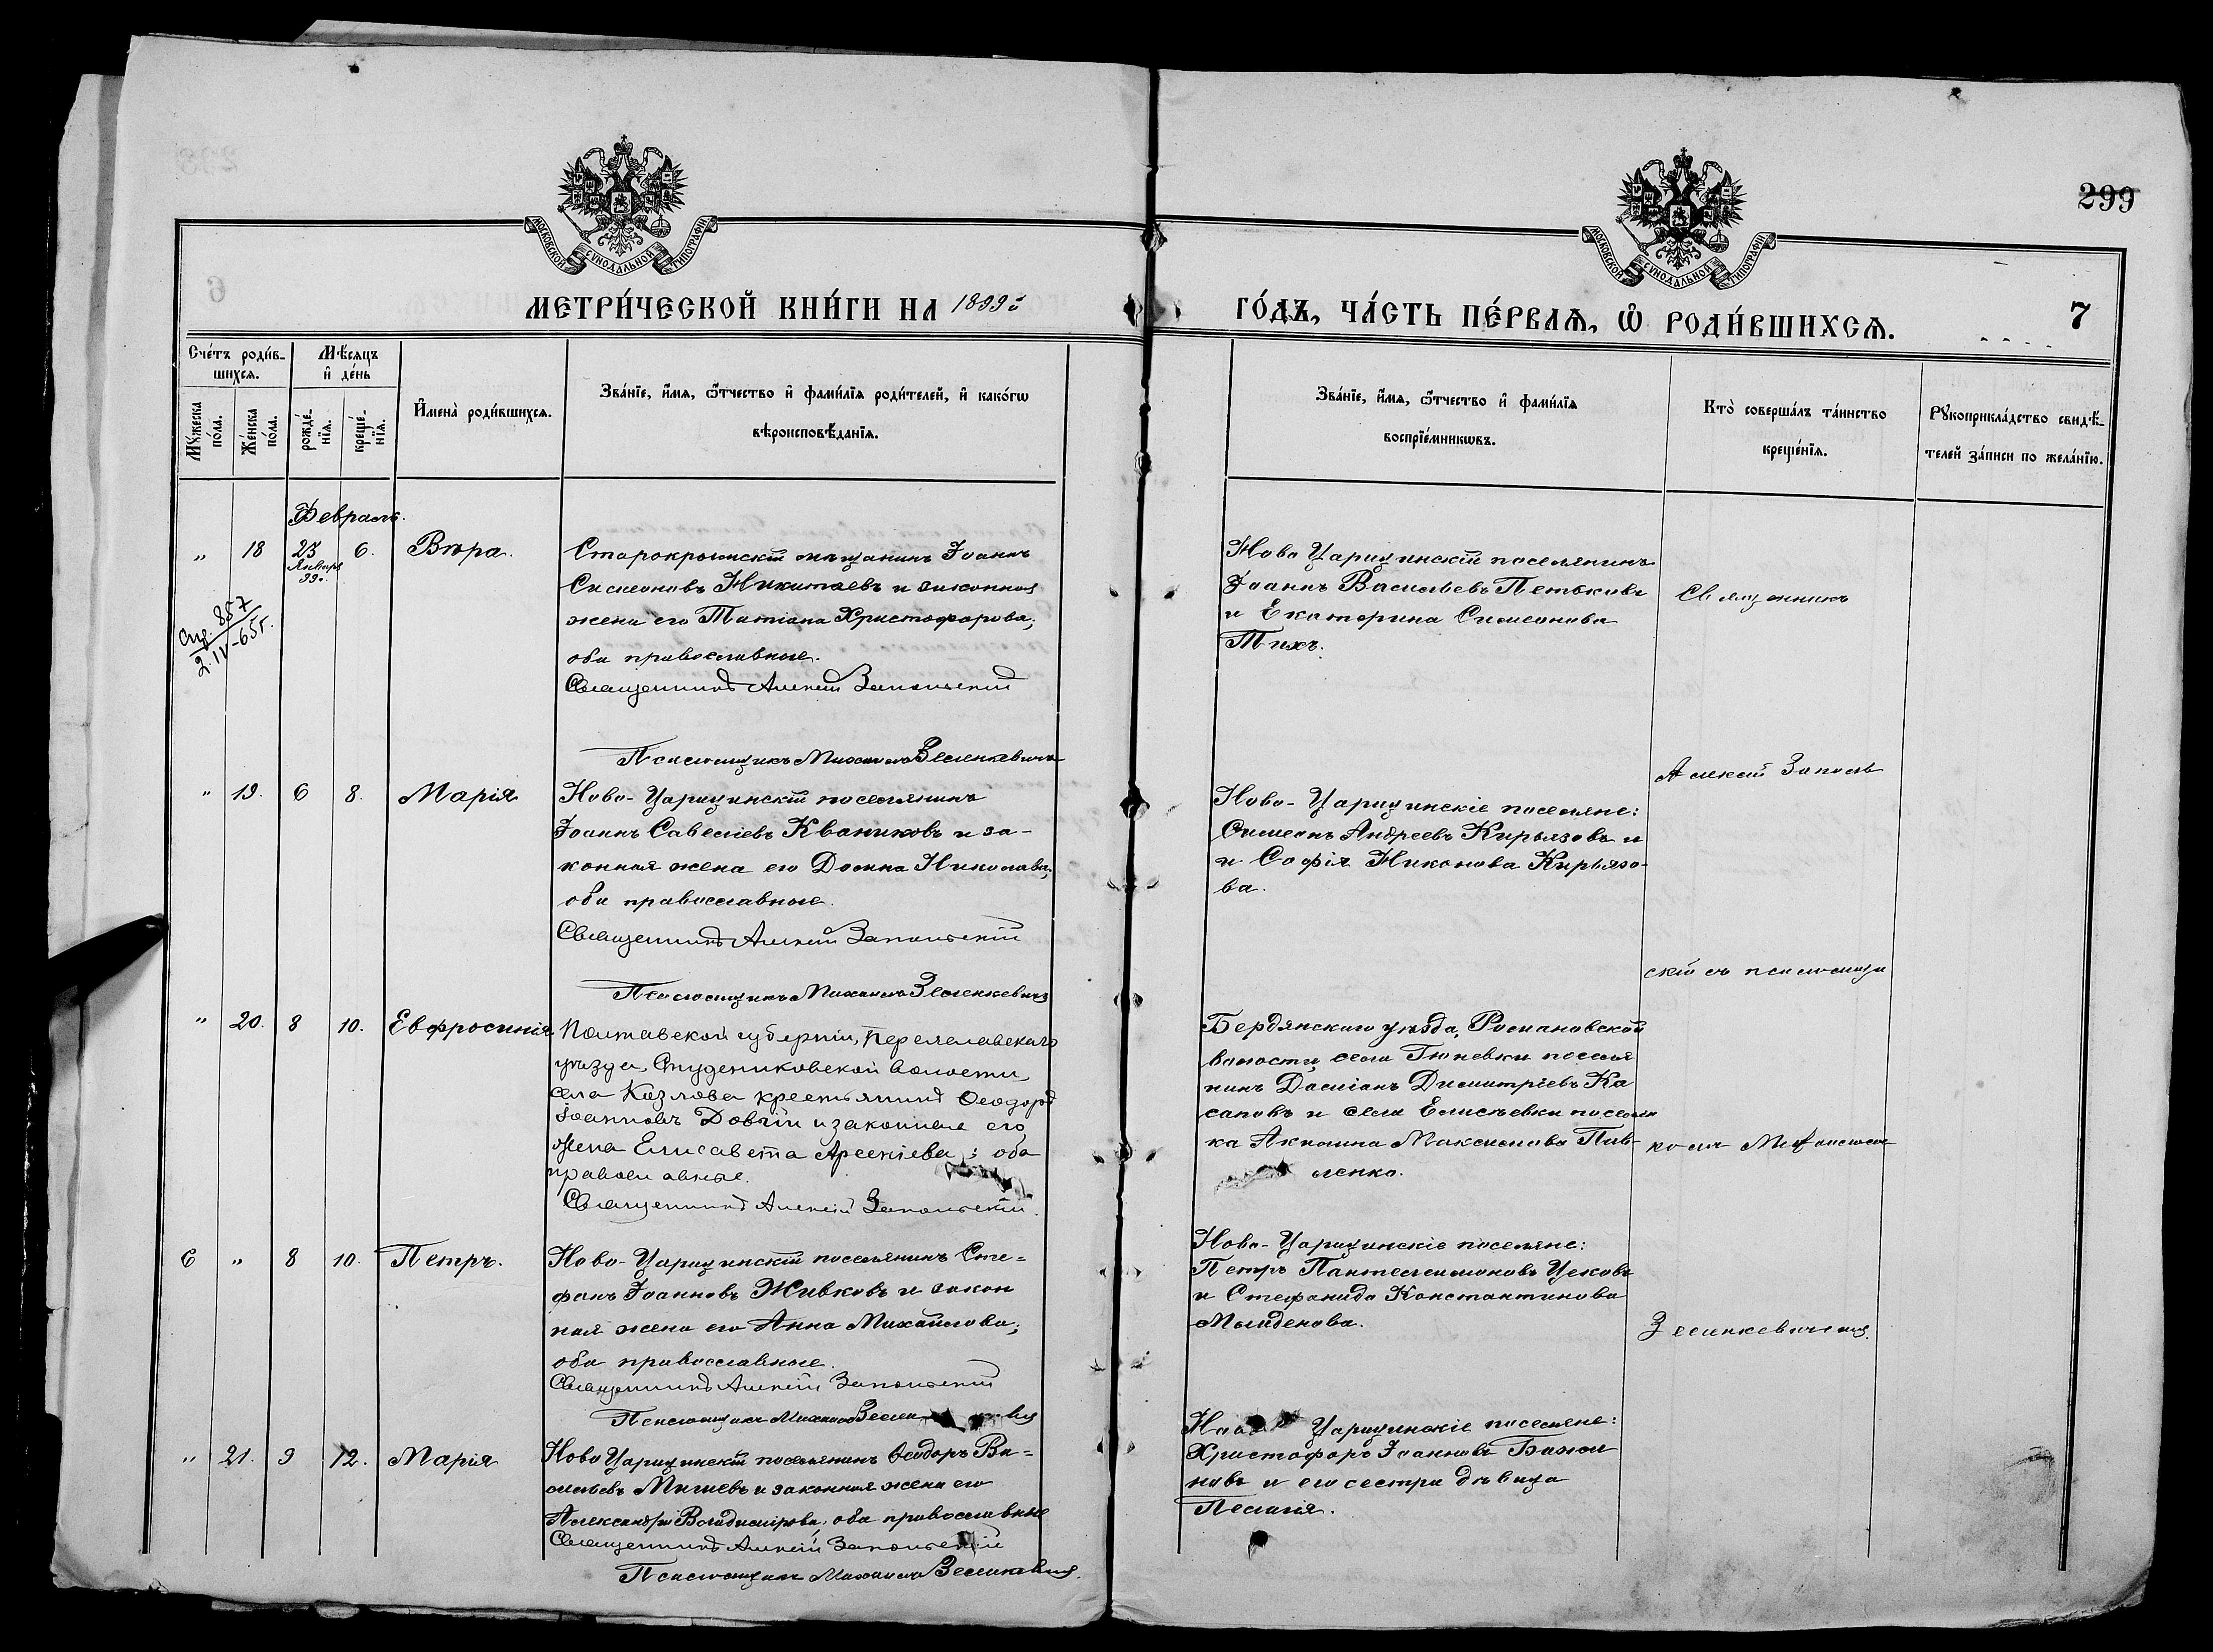 299
МОСКОВСКОЙ СѴНОДАЛЬНОЙ ТИПОГРАФІИ
МОСКОВСКОЙ СѴНОДАЛЬНОЙ ТИПОГРАФІИ
МЕТРИ́ЧЕСКОЙ КНИ́ГИ НА 1899й
ГО́ДЪ, ЧА́СТЬ ПЕ́РВАѦ, Ѡ҆ РОДИ́ВШИХСѦ.
7
Счéтъ роди́в-
шихсѧ.
Мꙋ́жеска по́ла.
Же́нска по́ла.
Мѣ́сѧцъ
и҆ де́нь
рожде́-
нїѧ.
креще́-
нїѧ.
И҆мена̀ роди́вшихсѧ.
Зва́нїе, и҆́мѧ, ѻ҆́тчество и҆ фами́лїѧ роди́телей, и҆ како́гѡ
вѣроисповѣ́данїѧ.
Зва́нїе, и҆́мѧ, ѻ҆́тчество и҆ фами́лїѧ
воспрїе́мникѡвъ.
Кто̀ соверша́лъ та́инство
креще́нїѧ.
Рꙋкоприкла́дство свидѣ́-
телей за́писи по жела́нїю.
Февраль.
„ 18 23 Января 99г. 6. Вѣра.
857
2.IV-65г.
Старокрымскій мѣщанинъ Іоаннъ
Симеоновъ Никитаевъ и законная
жена его Татіана Христофорова;
оба православные.
Священникъ Алексій Запольскій
Псаломщикъ Михаилъ Зеленкевичъ
Ново Царицинскій поселянинъ
Іоаннъ Васильевъ Петьковъ
и Екатерина Симеонова
Тихъ.
Священникъ
„ 19. 6 8. Марія
Ново-Царицинскій поселянинъ
Іоаннъ Савеліевъ Кваниковъ и за-
конная жена его Домна Николаева,
оба православные.
Священникъ Алексій Запольскій
Псаломщикъ Михаилъ Зеленкевичъ
Ново-Царицинскіе поселяне:
Симеонъ Андреевъ Кирьязовъ и
и Софія Никонова Кирьязо-
ва.
Алексій Заполь
скій съ псаломщи
„ 20. 8 10. Евфросинія
Полтавской губерніи, Переяславскаго
уѣзда, Студениковской волости
села Козлова крестьянинъ Ѳеодоръ
Іоанновъ Довгій и законная его
жена Елисавета Арсеніева; оба
православные.
Священникъ Алексій Запольскій.
Бердянскаго уѣзда, Романовской
волости села Гюневки поселя
нинъ Даміанъ Димитріевъ Ка
саповъ и села Елисѣевки поселян
ка Акилина Максимова Пав-
ленко.
комъ Михаиломъ
6 „ 8 10. Петръ.
Ново-Царицинскій поселянинъ Сте=
фанъ Іоанновъ Живковъ и закон
ная жена его Анна Михайлова;
оба православные.
Священникъ Алексій Запольскій
Псаломщикъ Михаилъ
Ново-Царицинскіе поселяне:
Петръ Пантелеимоновъ Цековъ
и Стефанида Константинова
Младенова.
Зеленкевичемъ.
„ 21. 9 12. Марія
Ново Царицинскій поселянинъ Ѳеодоръ Ва=
сильевъ Мишевъ и законная жена его
Александра Владимірова, оба православные
Священникъ Алексій Запольскій
Псаломщикъ Михаилъ Зеленкевичъ.
Ново Царицинскіе поселяне:
Христофоръ Іоанновъ Бажи
новъ и его сестра дѣвица
Пелагія.